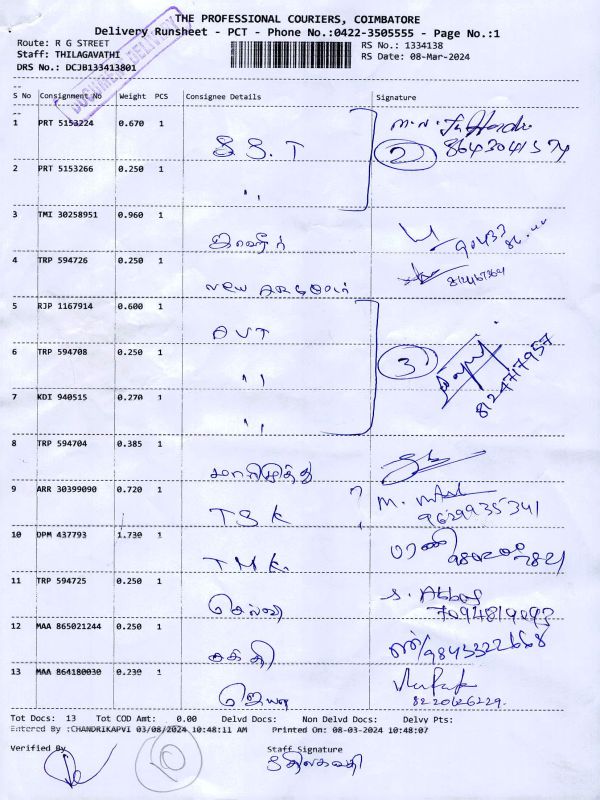 THE PROFESSIONAL COURIERS, COIMBATORE
Delivery Runsheet - PCT - Phone No.:0422-3505555 - Page No.:1
Route: R G STREET
Staff: THILAGAVATHI
DRS No.: DCJB133413801
RS No.: 1334138
RS Date: 08-Mar-2024
S No Consignment No Weight PCS Consignee Details Signature
1 PRT 5153224 0.670 1 S.S.T
2
2 PRT 5153266 0.250 1 "
3 TMI 30258951 0.960 1
4 TRP 594726 0.250 1 New
5 RJP 1167914 0.600 1 AVT
6 TRP 594708 0.250 1 " 3
8124717957
7 KDI 940515 0.270 1 "
8 TRP 594704 0.385 1 மாரிமுத்து
9 ARR 30399090 0.720 1 TSK M.
9629935341
10 DPM 437793 1.730 1 TMK. பரணி
11 TRP 594725 0.250 1 செல்வி S. Abbas
12 MAA 865021244 0.250 1 சக்தி
13 MAA 864180030 0.230 1 ஜெயா
8220626229
Tot Docs: 13 Tot COD Amt: 0.00 Delvd Docs: Non Delvd Docs: Delvy Pts:
Entered By :CHANDRIKAPVI 03/08/2024 10:48:11 AM Printed On: 08-03-2024 10:48:07
Verified By Staff Signature
10 திலகவதி